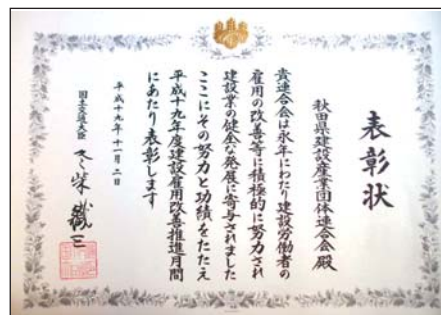 表彰状
秋田県建設産業団体連合会 殿
貴連合会は永年にわたり建設労働者の
雇用の改善等に積極的に努力され
建設業の健全な発展に寄与されました
ここにその努力と功績をたたえ
平成十九年度建設雇用改善推進月間
にあたり表彰します
平成十九年十一月二日
国土交通大臣 冬柴鐵三